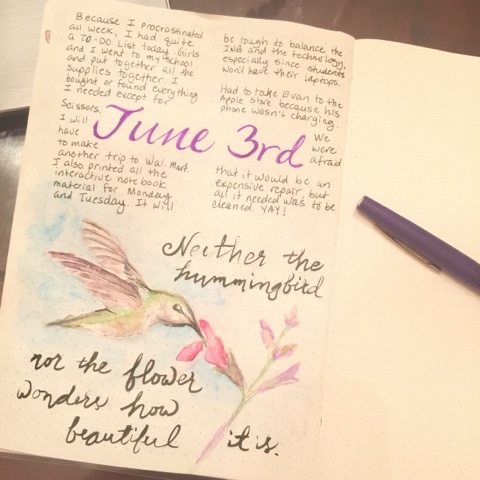 Because I procrastinated
all week, I had quite
a TO-DO List today. Girls
and I went to my school
and put together all the
supplies together. I
bought or found everything
I needed except for
Scissors.
I will
have
to make
another trip to Wal-Mart.
I also printed all the
interactive notebook
material for Monday
and Tuesday. It will
June 3rd
be tough to balance the
INB and the technology,
especially since students
won't have their laptops.
Had to take Evan to the
Apple Store because his
phone wasn't charging.
We
were
afraid
that it would be an
expensive repair, but
all it needed was to be
cleaned. YAY!
Neither the
hummingbird
nor the flower
wonders how
beautiful it is.